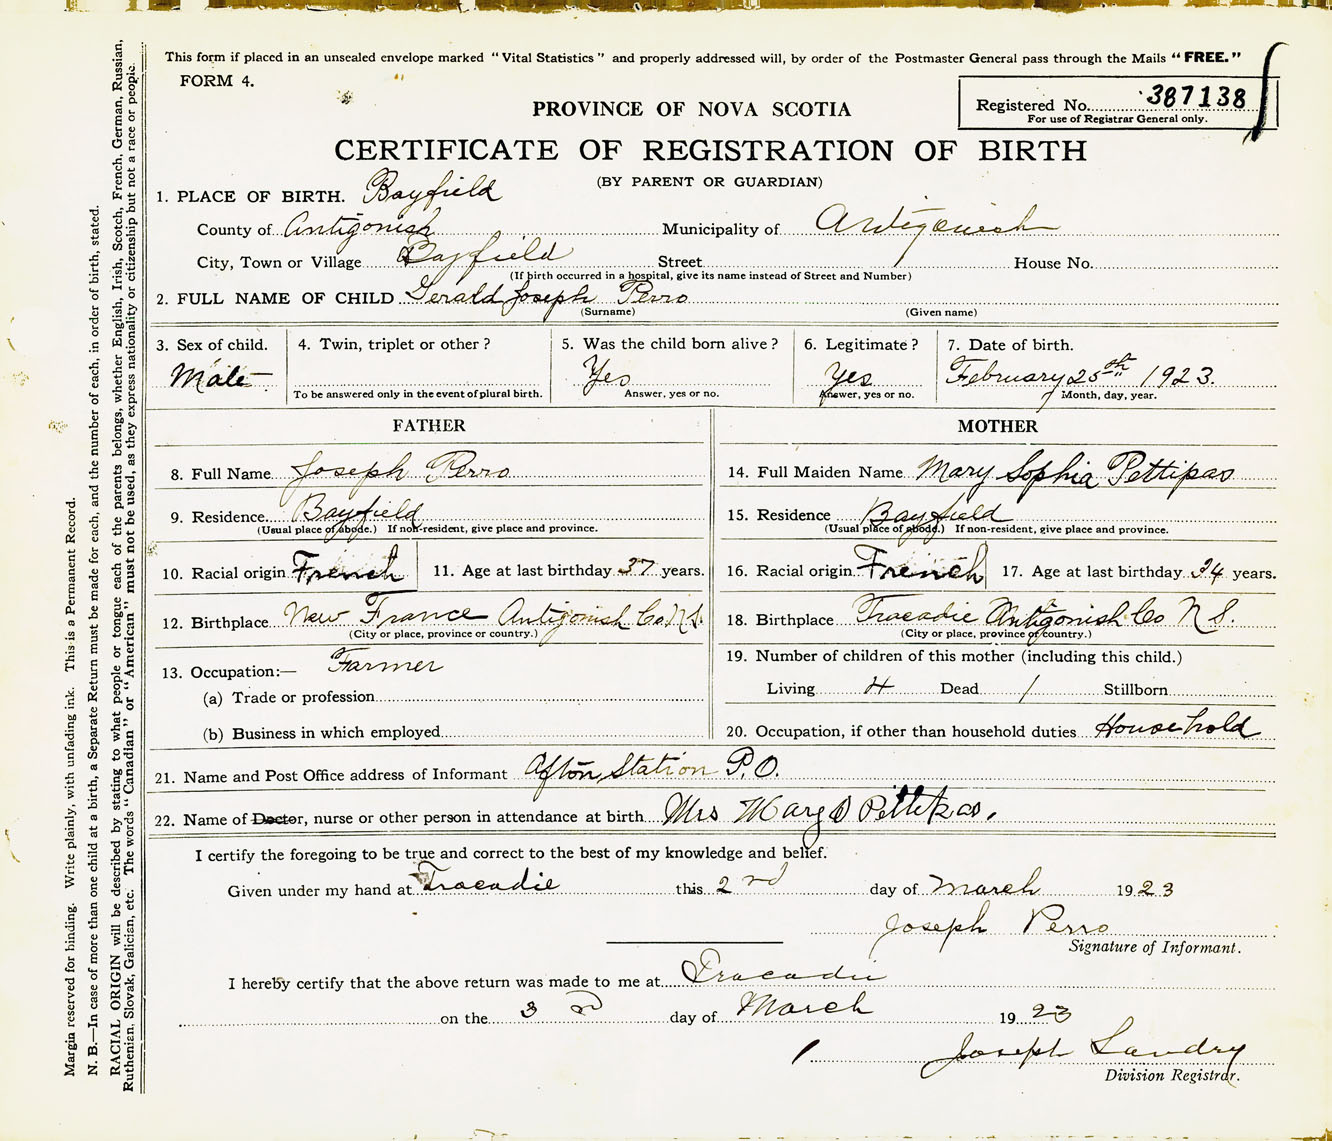 This form if placed in an unsealed envelope marked "Vital Statistics" and properly addressed will, by order of the Postmaster General pass through the Mails "FREE."
FORM 4.
Registered No. 387138
For use of Registrar General only.
PROVINCE OF NOVA SCOTIA
CERTIFICATE OF REGISTRATION OF BIRTH
(BY PARENT OR GUARDIAN)
1. PLACE OF BIRTH. Bayfield
County of Antigonish Municipality of Antigonish
City, Town or Village Bayfield Street House No.
(If birth occurred in a hospital, give its name instead of Street and Number)
2. FULL NAME OF CHILD Gerald Joseph Perro
(Surname) (Given name)
3. Sex of child. 4. Twin, triplet or other? 5. Was the child born alive? 6. Legitimate? 7. Date of birth.
Male Yes Yes February 25th 1923.
To be answered only in the event of plural birth. Answer, yes or no. Answer, yes or no. Month, day, year.
FATHER MOTHER
8. Full Name Joseph Perro 14. Full Maiden Name Mary Sophia Pettipas
9. Residence Bayfield 15. Residence Bayfield
(Usual place of abode.) If non-resident, give place and province. (Usual place of abode.) If non-resident, give place and province.
10. Racial origin French 11. Age at last birthday 37 years. 16. Racial origin French 17. Age at last birthday 34 years.
12. Birthplace New France Antigonish Co. N.S. 18. Birthplace Tracadie Antigonish Co N S.
(City or place, province or country.) (City or place, province or country.)
13. Occupation:— Farmer 19. Number of children of this mother (including this child.)
(a) Trade or profession Living 4 Dead 1 Stillborn
(b) Business in which employed 20. Occupation, if other than household duties Household
21. Name and Post Office address of Informant Afton Station P.O.
22. Name of Doctor, nurse or other person in attendance at birth Mrs Mary Pettipas.
I certify the foregoing to be true and correct to the best of my knowledge and belief.
Given under my hand at Tracadie this 2nd day of March 1923
Joseph Perro
Signature of Informant.
I hereby certify that the above return was made to me at Tracadie
on the 3rd day of March 1923
Joseph Landry
Division Registrar.
Margin reserved for binding. Write plainly, with unfading ink. This is a Permanent Record.
N. B.—In case of more than one child at a birth, a Separate Return must be made for each, and the number of each, in order of birth, stated.
RACIAL ORIGIN will be described by stating to what people or tongue each of the parents belongs, whether English, Irish, Scotch, French, German, Russian,
Ruthenian, Slovak, Galician, etc. The words "Canadian" or "American" must not be used, as they express nationality or citizenship but not a race or people.